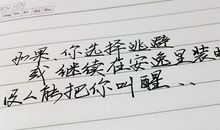 如果.你选择逃避
或继续在安逸里装睡
没人能把你叫醒...